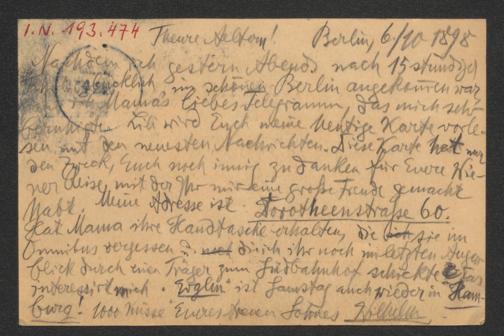 I.N. 193.474
Theure Aeltern! Berlin, 6/10 1898
Nachdem ich gestern Abends nach 15 stündiger
glücklich im schönen Berlin angekommen war
ich Mamas liebes Telegramm, das mich sehr
beruhigte. Lili wird Euch meine heutige Karte vorle-
sen mit den neuesten Nachrichten. Diese Karte hat nur
den Zweck, Euch noch innig zu danken für Euere Wie-
ner Reise, mit der Ihr mir eine große Freude gemacht
habt. Meine Adresse ist Dorotheenstraße 60.
Hat Mama ihre Handtasche erhalten, die sie im
Omnibus vergessen u. die ich ihr noch im letzten Augen-
blick durch einen Träger zum Südbahnhof schickte? Das
interessirt mich. "Evglin" ist Samstag auch wieder in Ham-
burg! 1000 Küsse Eueres treuen Sohnes